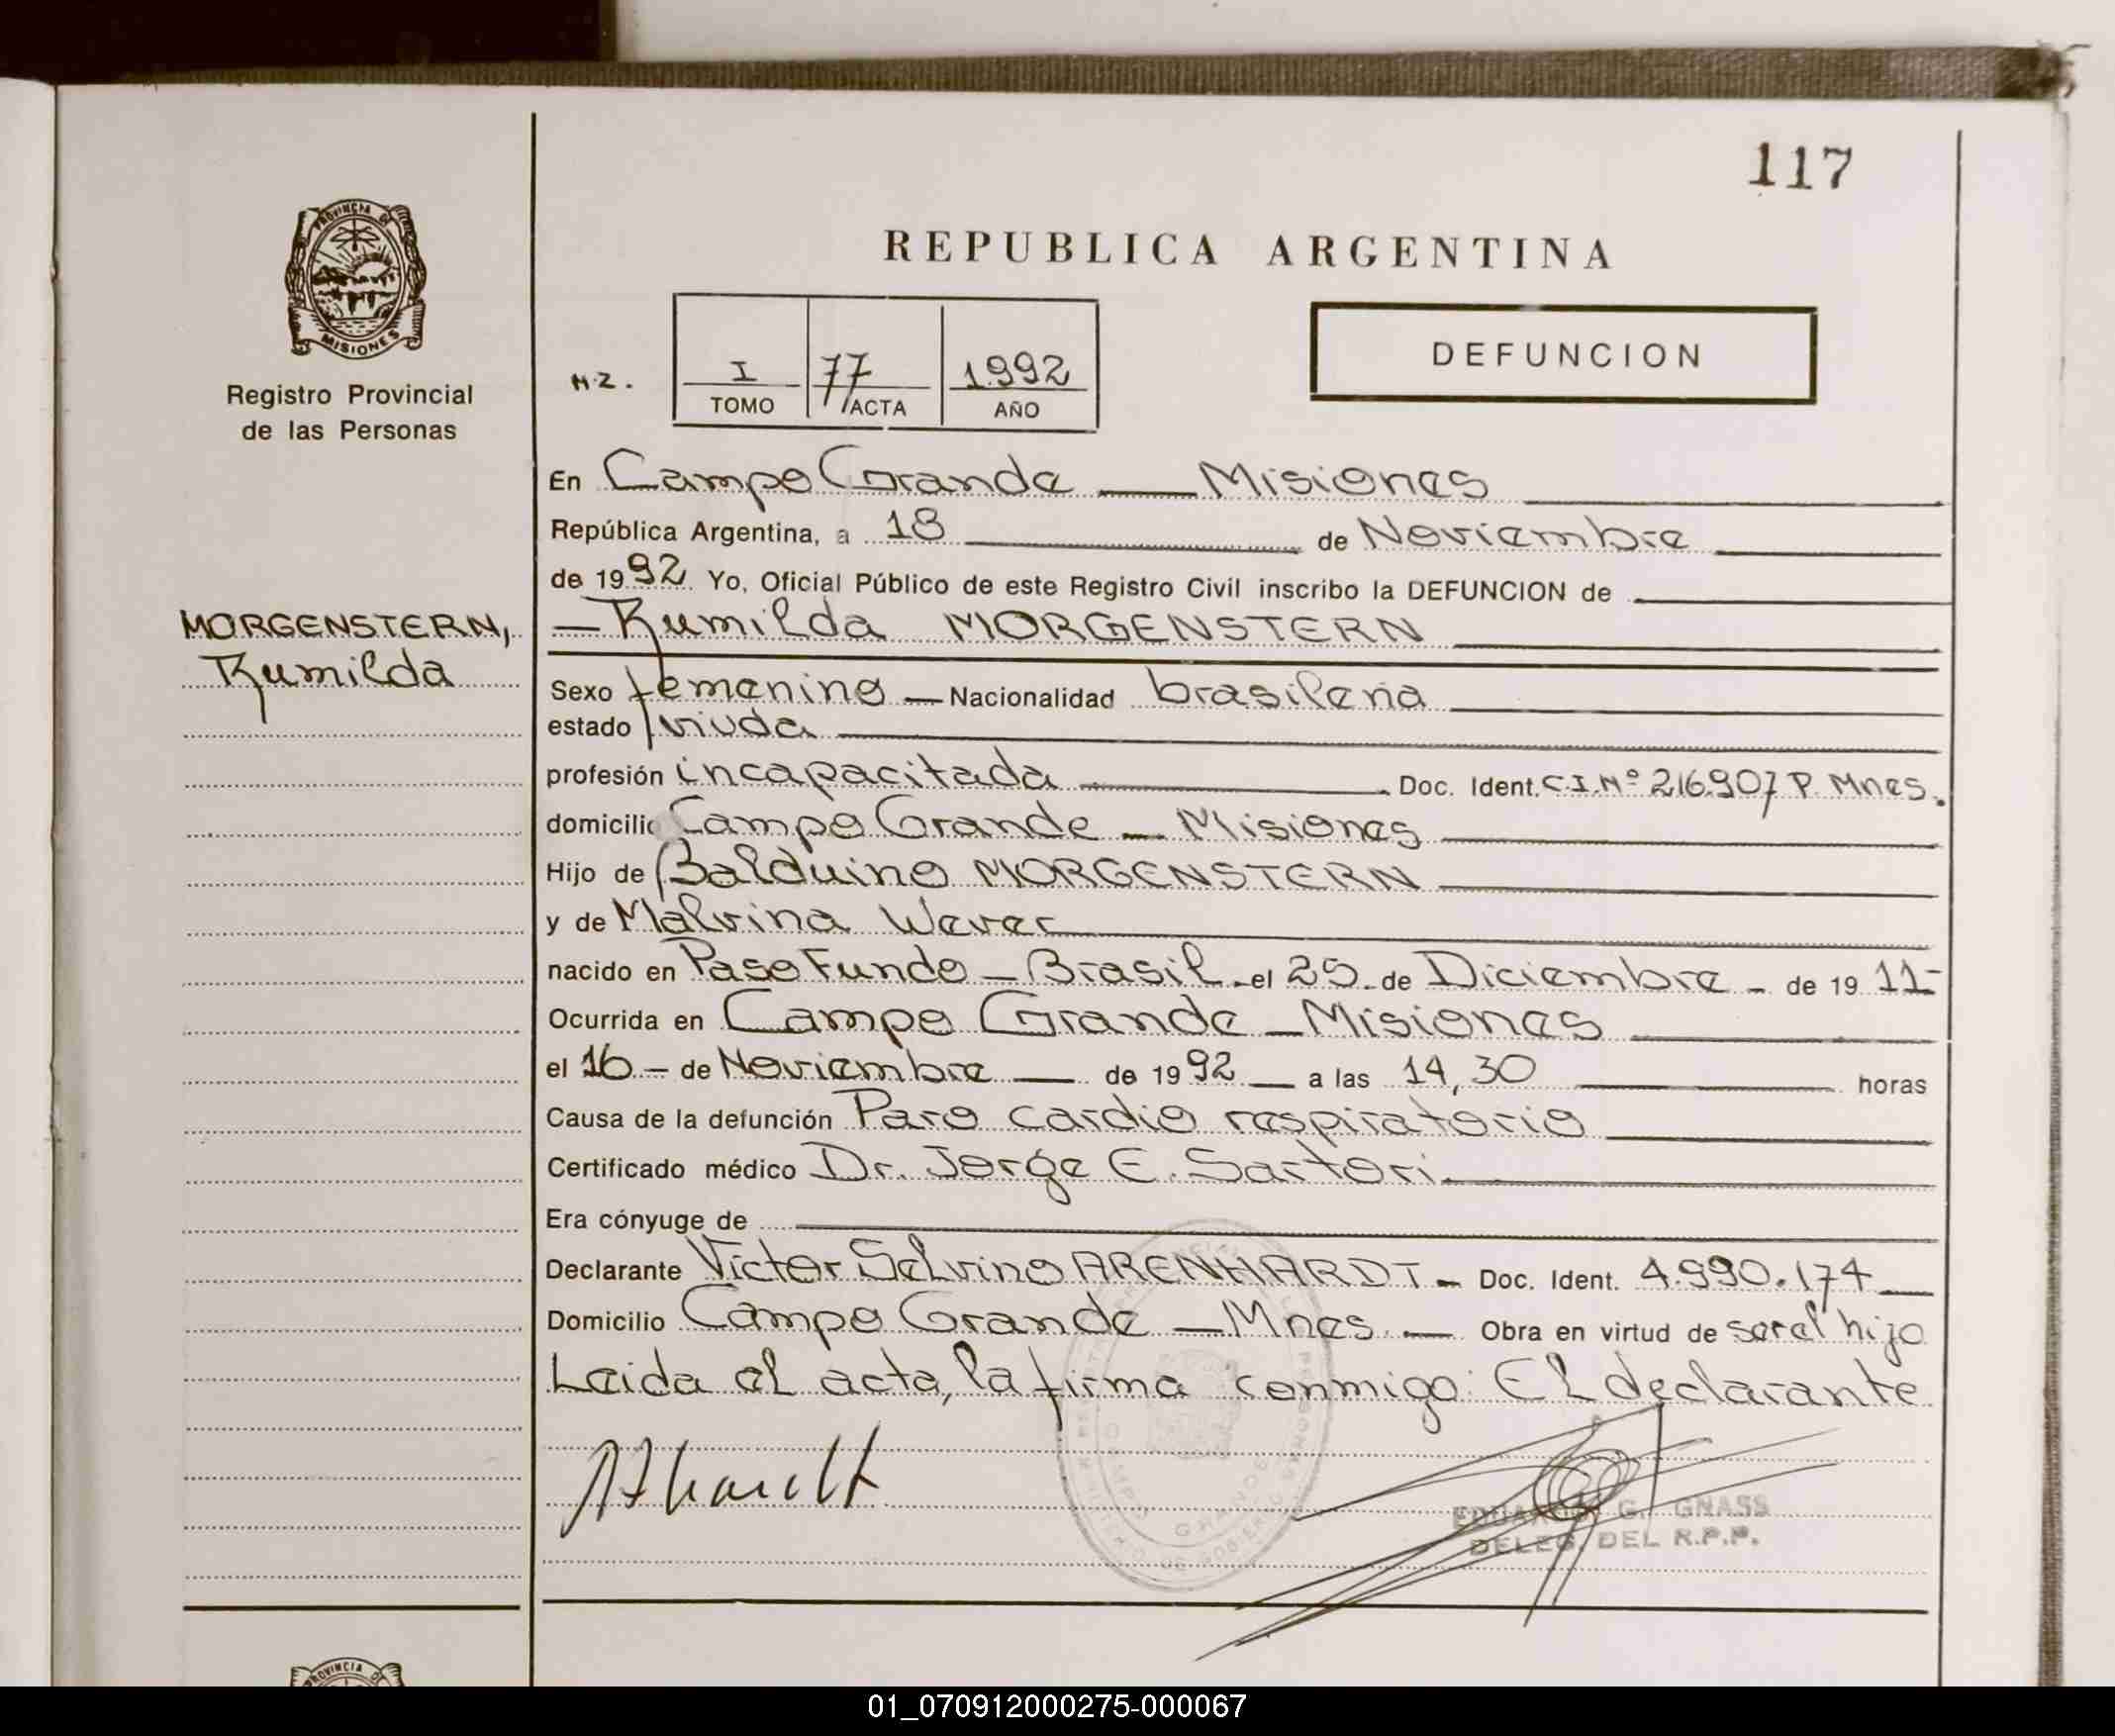 117
PROVINCIA DE
MISIONES
Registro Provincial
de las Personas
REPUBLICA ARGENTINA
N.Z. I 77 1992
TOMO ACTA AÑO
DEFUNCION
MORGENSTERN,
Rumilda
En Campo Grande — Misiones
República Argentina, a 18 de Noviembre
de 1992 Yo, Oficial Público de este Registro Civil inscribo la DEFUNCION de
— Rumilda MORGENSTERN
Sexo femenino — Nacionalidad brasileña
estado viuda
profesión incapacitada Doc. Ident. C.I. Nº 216.907 P. Mnes.
domicilio Campo Grande — Misiones
Hijo de Balduino MORGENSTERN
y de Malvina Wever
nacido en Paso Fundo — Brasil - el 25 - de Diciembre - de 19 11-
Ocurrida en Campo Grande — Misiones
el 16 — de Noviembre — de 1992 — a las 14,30 horas
Causa de la defunción Paro cardio respiratorio
Certificado médico Dr. Jorge E. Sartori
Era cónyuge de
Declarante Victor Selvino ARENHARDT - Doc. Ident. 4.990.174
Domicilio Campo Grande — Mnes. — Obra en virtud de ser el hijo
Leida el acta, la firma conmigo: El declarante
EDUARDO G. GNASS
DELEG. DEL R.P.P.
PROVINCIA DE
01_070912000275-000067